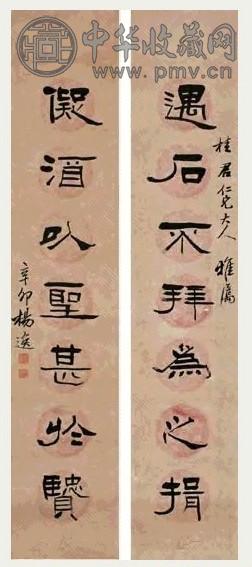 中华收藏网
www.pmv.cn
桂君仁兄大人 雅屬
遇石不拜為之揖
假酒以聖甚於賢
辛卯楊逸